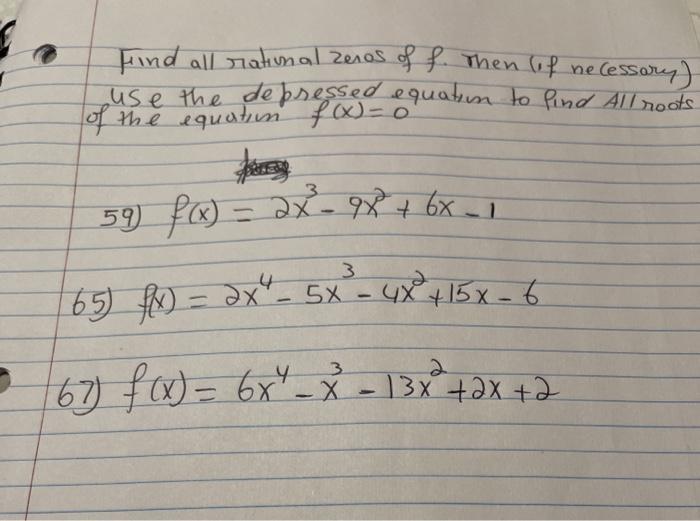 Find all rational zeros of f. Then (if necessary)
use the depressed equation to find All roots
of the equation f(x) = 0
59) f(x) = 2x³ - 9x² + 6x - 1
65) f(x) = 2x⁴ - 5x³ - 4x² + 15x - 6
67) f(x) = 6x⁴ - x³ - 13x² + 2x + 2